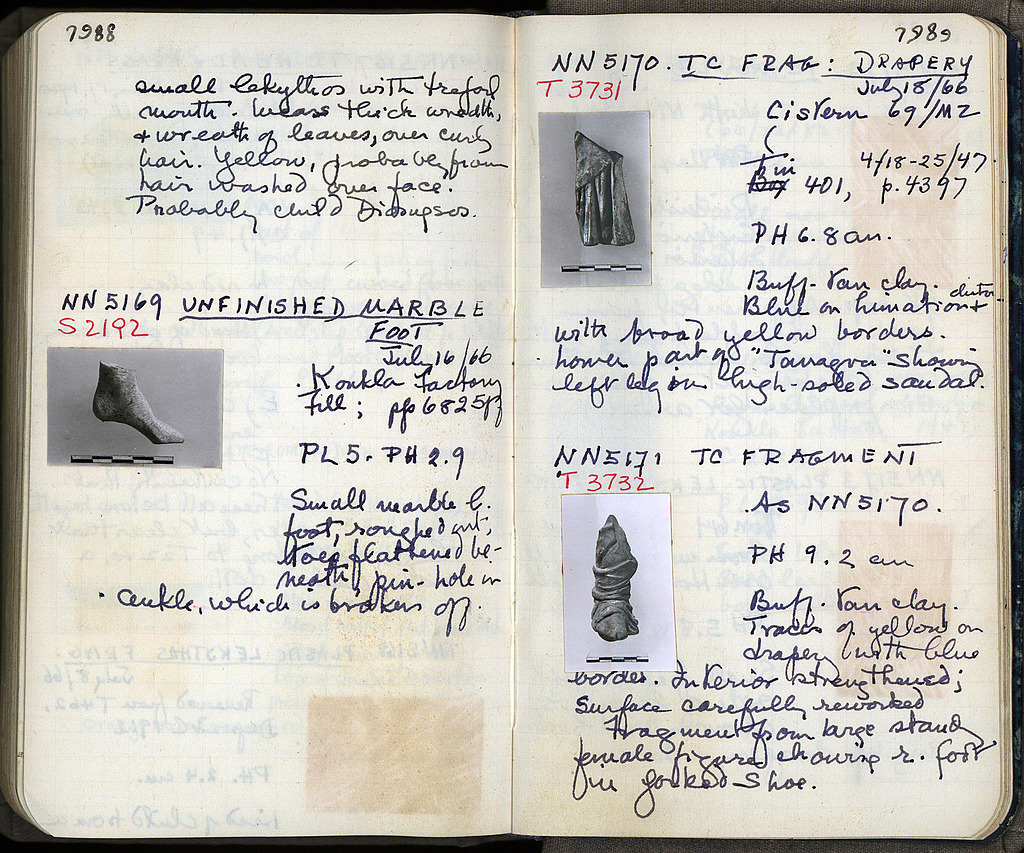 7988
small lekythos with trefoil
mouth. Wears thick wreath,
& wreath of leaves, over curly
hair. Yellow, probably from
hair washed over face.
Probably child Dionysos.
NN 5169 UNFINISHED MARBLE
S 2192
FOOT
July 16/66
Koukla Factory
Fill; pp 6825ff
PL 5. PH 2.9
Small marble l.
foot, roughed out;
toes flattened be-
neath, pin-hole in
ankle, which is broken off.
7989
NN 5170. TC FRAG: DRAPERY
T 3731
July 18/66
Cistern 69/MZ
Tin 4/18-25/47.
Box 401, p. 4397
PH 6.8 cm.
Buff-tan clay.
Blue on himation
with broad yellow borders.
Lower part of "Tanagra" showing
left leg in high-soled sandal.
NN 5171 TC FRAGMENT
T 3732
As NN 5170.
PH 9.2 cm
Buff-tan clay.
Traces of yellow on
drapery with blue
border. Interior strengthened;
surface carefully reworked
Fragment from large standg
female figure showing r. foot
in forked shoe.